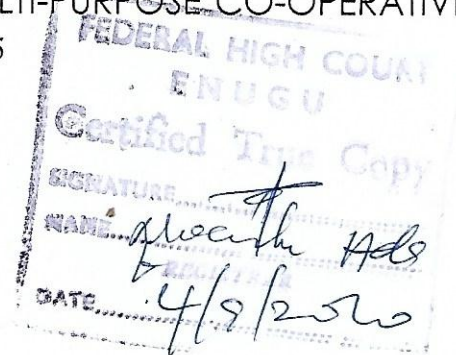 LTI-PURPOSE CO-OPERATIVE
5
FEDERAL HIGH COURT
ENUGU
Certified True Copy
SIGNATURE
NAME Ade
REGISTRAR
DATE 4/9/2020